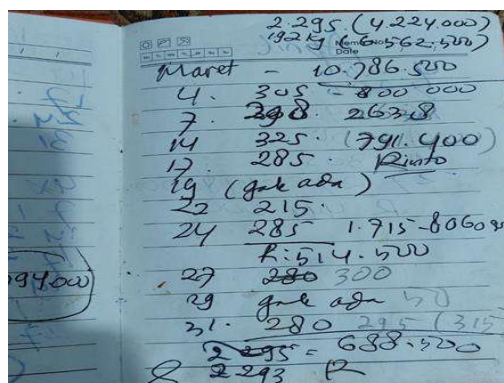 2.295.(4.224.000)
192 kg (6.562.500)
Date
Maret - 10.786.500
4. 305 - 800 000
7. 298. 263.8
14 325. (791.400)
17. 285.
19 (gak ada)
22 215.
24 285 1.715-8060
R: 514.500
94.000
27 280 300
29 gak ada 50
31. 280 295 (315
2295 = 688.500
2293 R